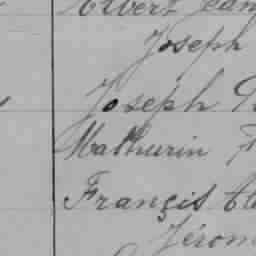 Albert Jean
Joseph
Joseph
Mathurin
François
Jérom